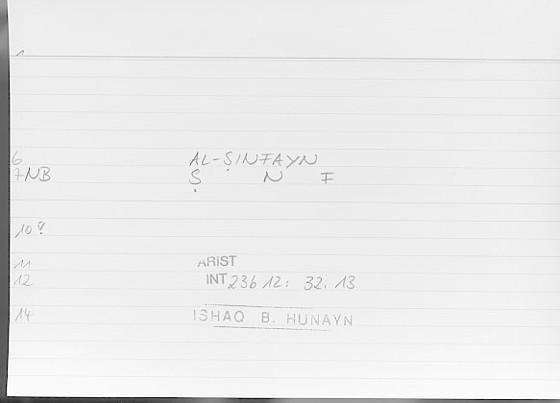 1
6 AL-ṢINFAYN
7NB Ṣ N F
10?
11 ARIST
12 INT 23b 12: 32.13
14 ISHAQ B. HUNAYN